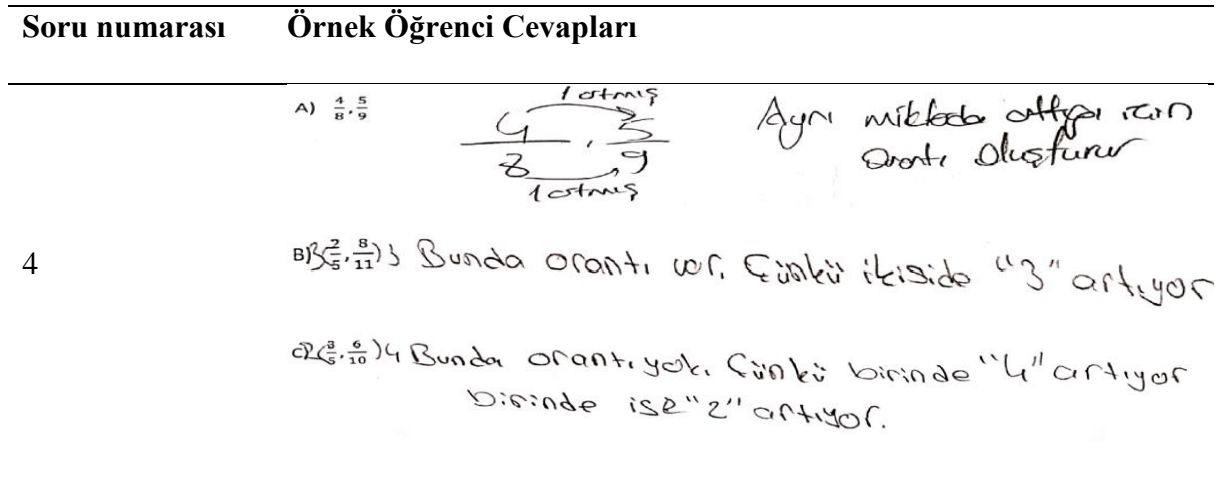 Soru numarası Örnek Öğrenci Cevapları
A) 4/8, 5/9
1 artmış
4/8, 5/9
1 artmış
Aynı miktarda arttığı için
Orantı Oluşturur
4
B) 3(2/5, 8/11)3 Bunda orantı var. Çünkü ikiside "3" artıyor
C) 2(3/5, 6/10)4 Bunda orantı yok. Çünkü birinde "4" artıyor
birinde ise "2" artıyor.